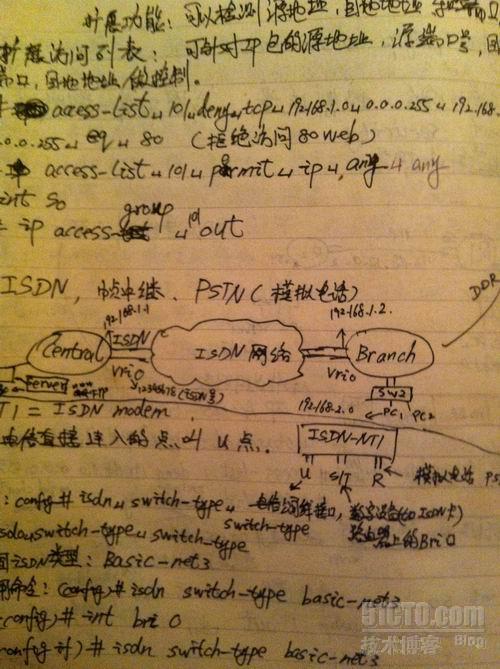 扩展功能：可以检测源地址，目地地址，端口
扩展访问列表：可针对IP包的源地址，源端口号，目
端口，目地地址做控制。
access-list␣101␣deny␣tcp␣192.168.1.0␣0.0.0.255␣192.168.
0.0.255␣eq␣80 (拒绝访问80web)
access-list␣101␣permit␣ip␣any␣any
int S0
ip access-group␣101 out
ISDN，帧中继、PSTN(模拟电话)
DDR
192.168.1.1
192.168.1.2.
Central
ISDN
ISDN网络
Branch
Vrio
Vrio
Server
12345678(ISDN号)
SW2
192.168.2.0
PC1 PC2
NT1 = ISDN modem
ISDN-NT1
电信直接连入的点叫U点.
U S/T R
模拟电话 PS
: config# isdn␣switch-type␣
switch-type
数字设备(如ISDN卡)
路由器上的Bri0
isdn␣switch-type␣switch-type
国isdn类型：Basic-net3
用命令：(config)# isdn switch-type basic-net3
(config)# int bri 0
config-if)# isdn switch-type basic-net3
51CTO.com
技术博客 Blog